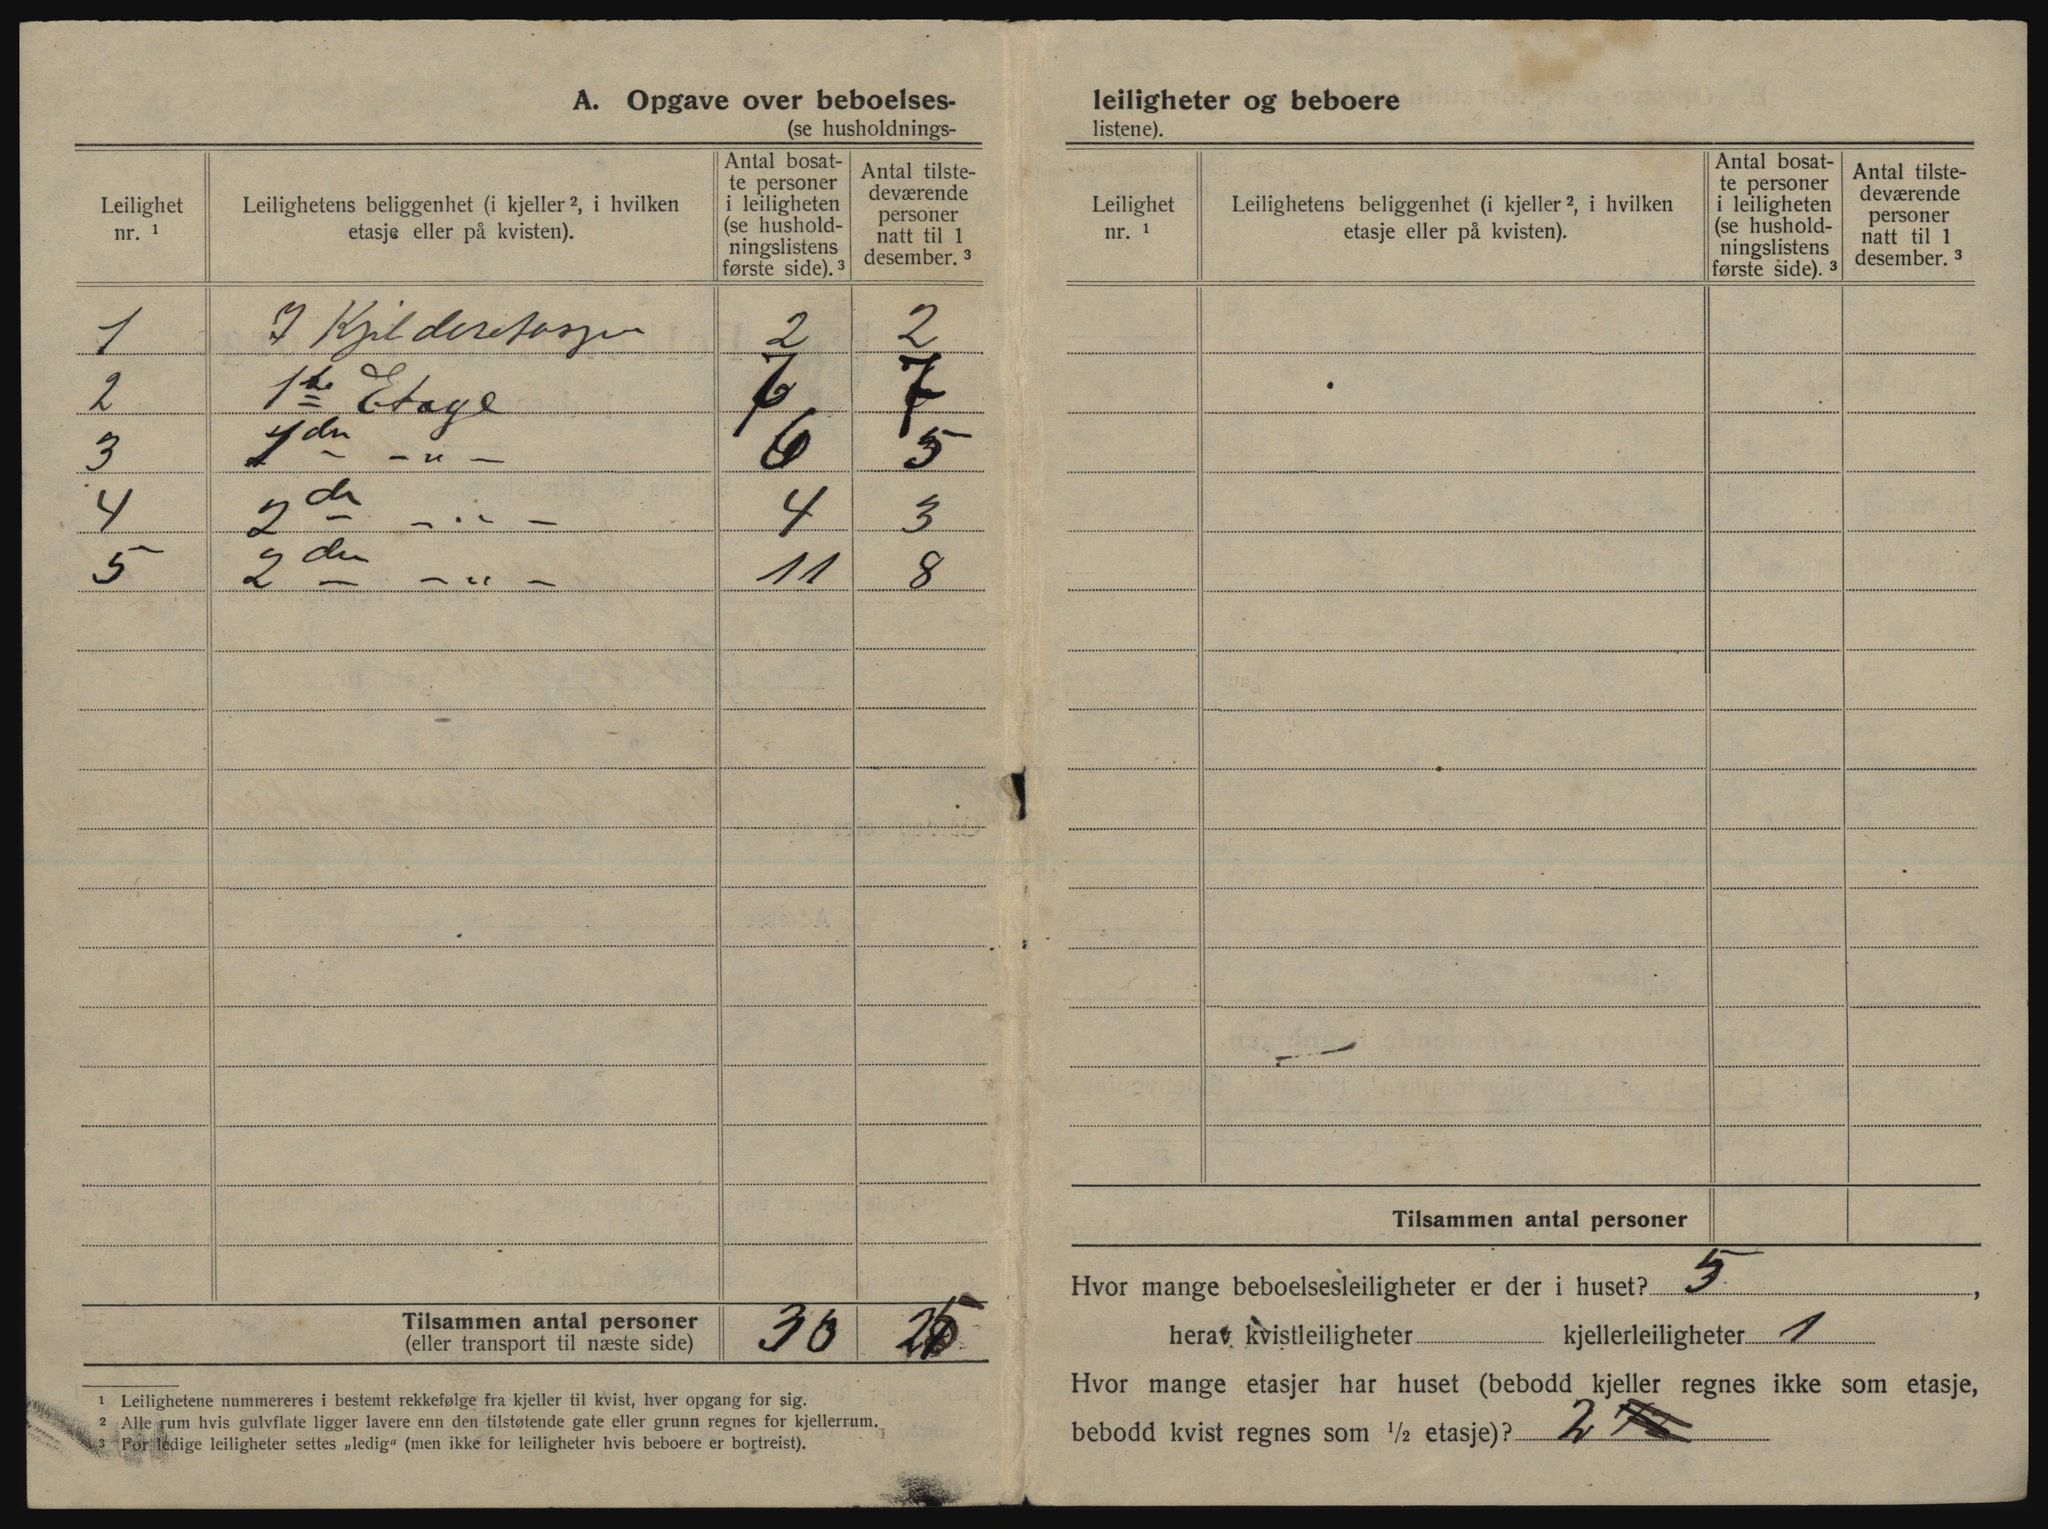 A. Opgave over beboelses-
(se husholdnings-
Leilighet nr. ¹
Leilighetens beliggenhet (i kjeller ², i hvilken etasje eller på kvisten).
Antal bosat-
te personer
i leiligheten
(se hushold-
ningslistens
første side). ³
Antal tilste-
deværende
personer
natt til 1
desember. ³
1 I 2 2
2 1ste Etage 7 7
3 1 – „ – 6 5
4 2den – „ – 4 3
5 2den – „ – 11 8
Tilsammen antal personer 30 25
(eller transport til næste side)
¹ Leilighetene nummereres i bestemt rekkefølge fra kjeller til kvist, hver opgang for sig.
² Alle rum hvis gulvflate ligger lavere enn den tilstøtende gate eller grunn regnes for kjellerrum.
³ For ledige leiligheter settes „ledig“ (men ikke for leiligheter hvis beboere er bortreist).
leiligheter og beboere
listene).
Leilighet nr. ¹
Leilighetens beliggenhet (i kjeller ², i hvilken etasje eller på kvisten).
Antal bosat-
te personer
i leiligheten
(se hushold-
ningslistens
første side). ³
Antal tilste-
deværende
personer
natt til 1
desember. ³
Tilsammen antal personer
Hvor mange beboelsesleiligheter er der i huset? 5,
herav kvistleiligheter kjellerleiligheter 1
Hvor mange etasjer har huset (bebodd kjeller regnes ikke som etasje,
bebodd kvist regnes som 1/2 etasje)? 2